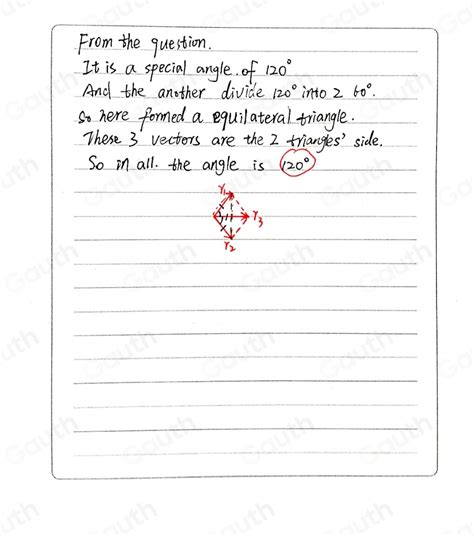 From the question.
It is a special angle of 120°
And the another divide 120° into 2 60°.
So here formed a equilateral triangle.
These 3 vectors are the 2 triangles' side.
So in all. the angle is 120°
r₁
r₃
r₂
Gauth